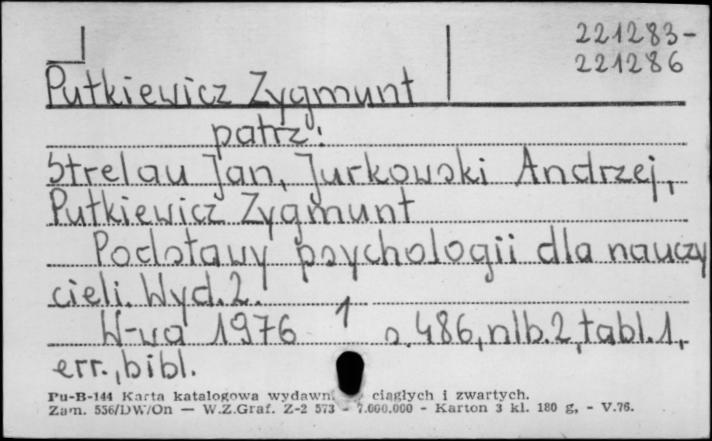 221283-
221286
Putkiewicz Zygmunt
patrz:
Strelau Jan, Jurkowski Andrzej,
Putkiewicz Zygmunt
Podstawy psychologii dla nauczy
cieli. Wyd. 2.
W-wa 1976 1 s. 486, nlb. 2, tabl. 1,
err., bibl.
Pu-B-144 Karta katalogowa wydawn. ciągłych i zwartych.
Zam. 556/DW/On — W.Z.Graf. Z-2 573 - 7.000.000 - Karton 3 kl. 180 g, - V.76.